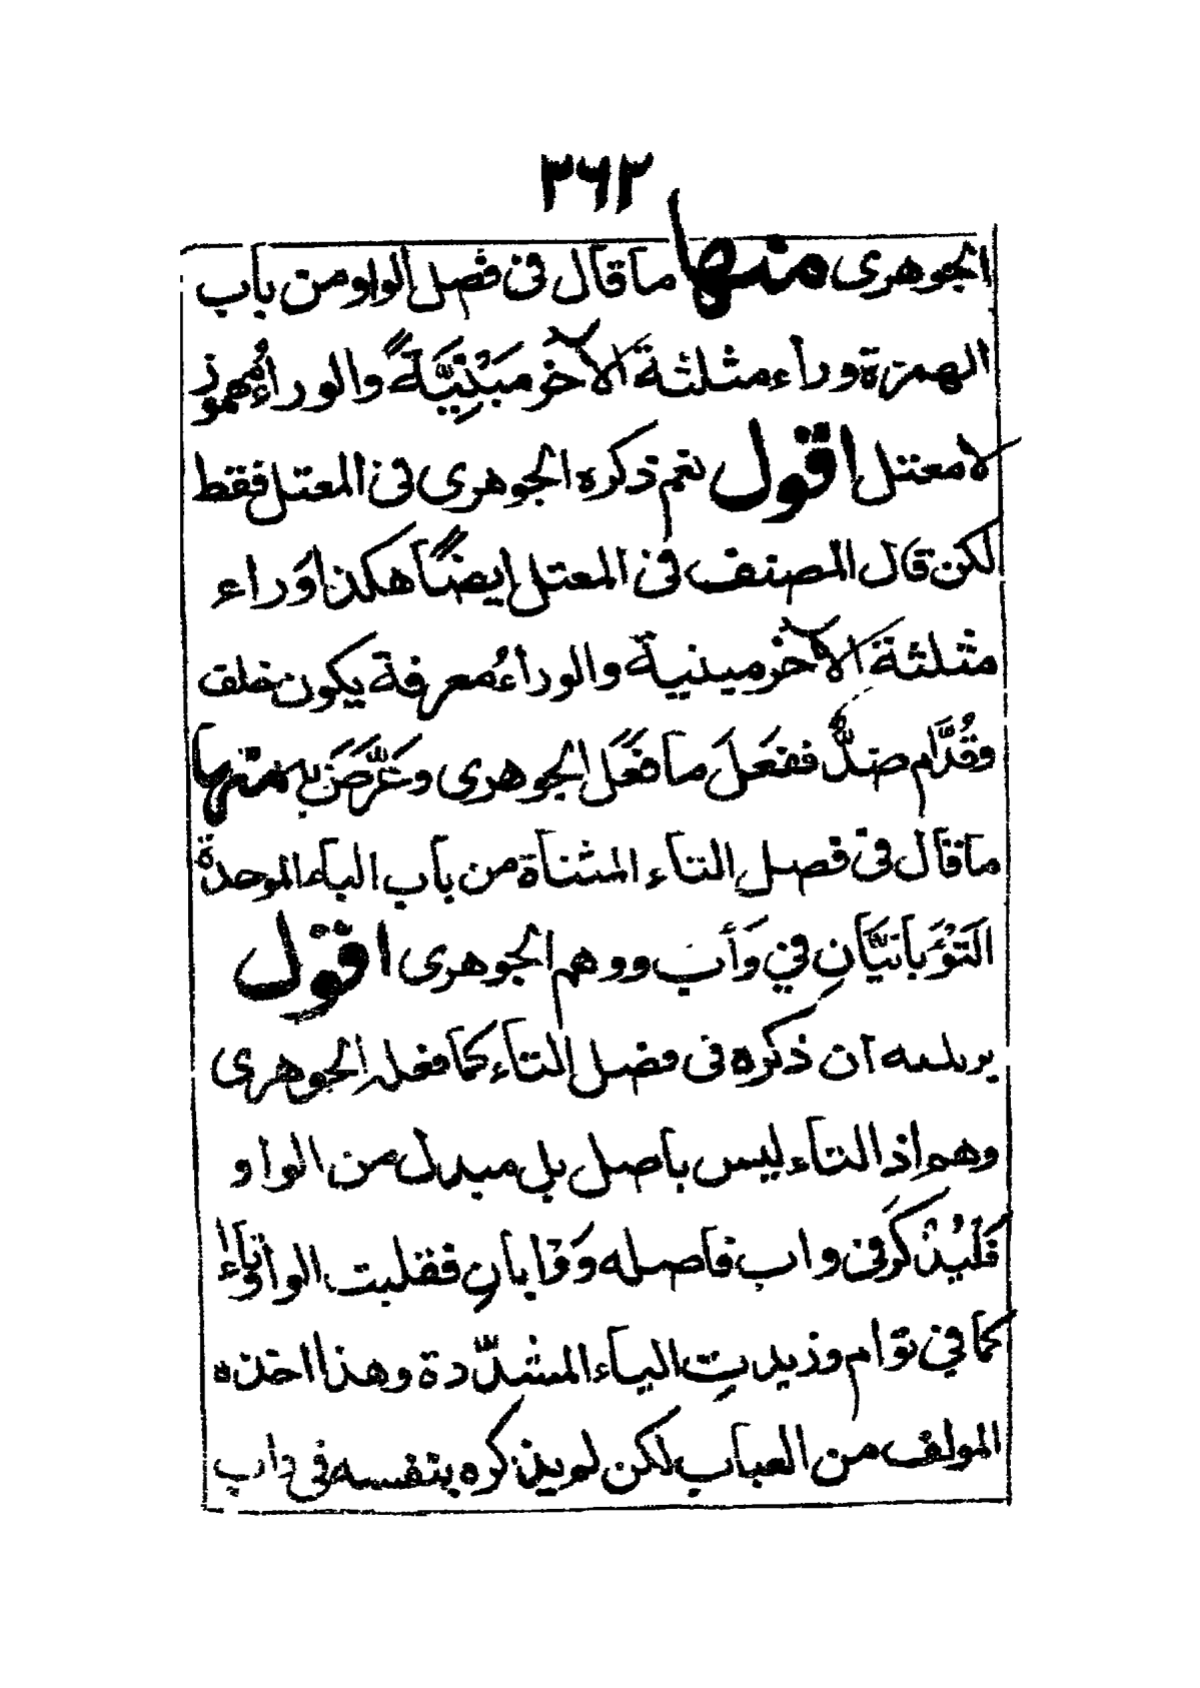 ٢٦٢
الجوهرى منها ما قال فى فصل الواو من باب
الهمزة وراء مثلثة الاخر مبنِيَّةً والوراءُ مهموز
لا معتل اقول نعم ذكره الجوهرى فى المعتل فقط
لكن قال المصنف فى المعتل ايضًا هكذا وَراء
مثلثة الاخر مبنية والوراءُ معرفة يكون خلف
وقُدَّام ضدٌّ ففعَلَ ما فَعَل الجوهرى وعَرَّضَ به منها
ما قال فى فصل التاء المثناة من باب الباء الموحدة
التَوْءَبانيَّانِ في وَأَبَ ووهم الجوهرى اقول
يريد به ان ذكره فى فصل التاء كما فعله الجوهرى
وهم اذ التاء ليس باصل بل مبدل من الواو
فَلْيُذْكَر فى واب فاصله وَوْابانِ فقلبت الواو تاءً
كما في توام وزيدتِ الياء المشدّدة وهذا اخذه
المولف من العباب لكن لم يذكره بنفسه فى واب